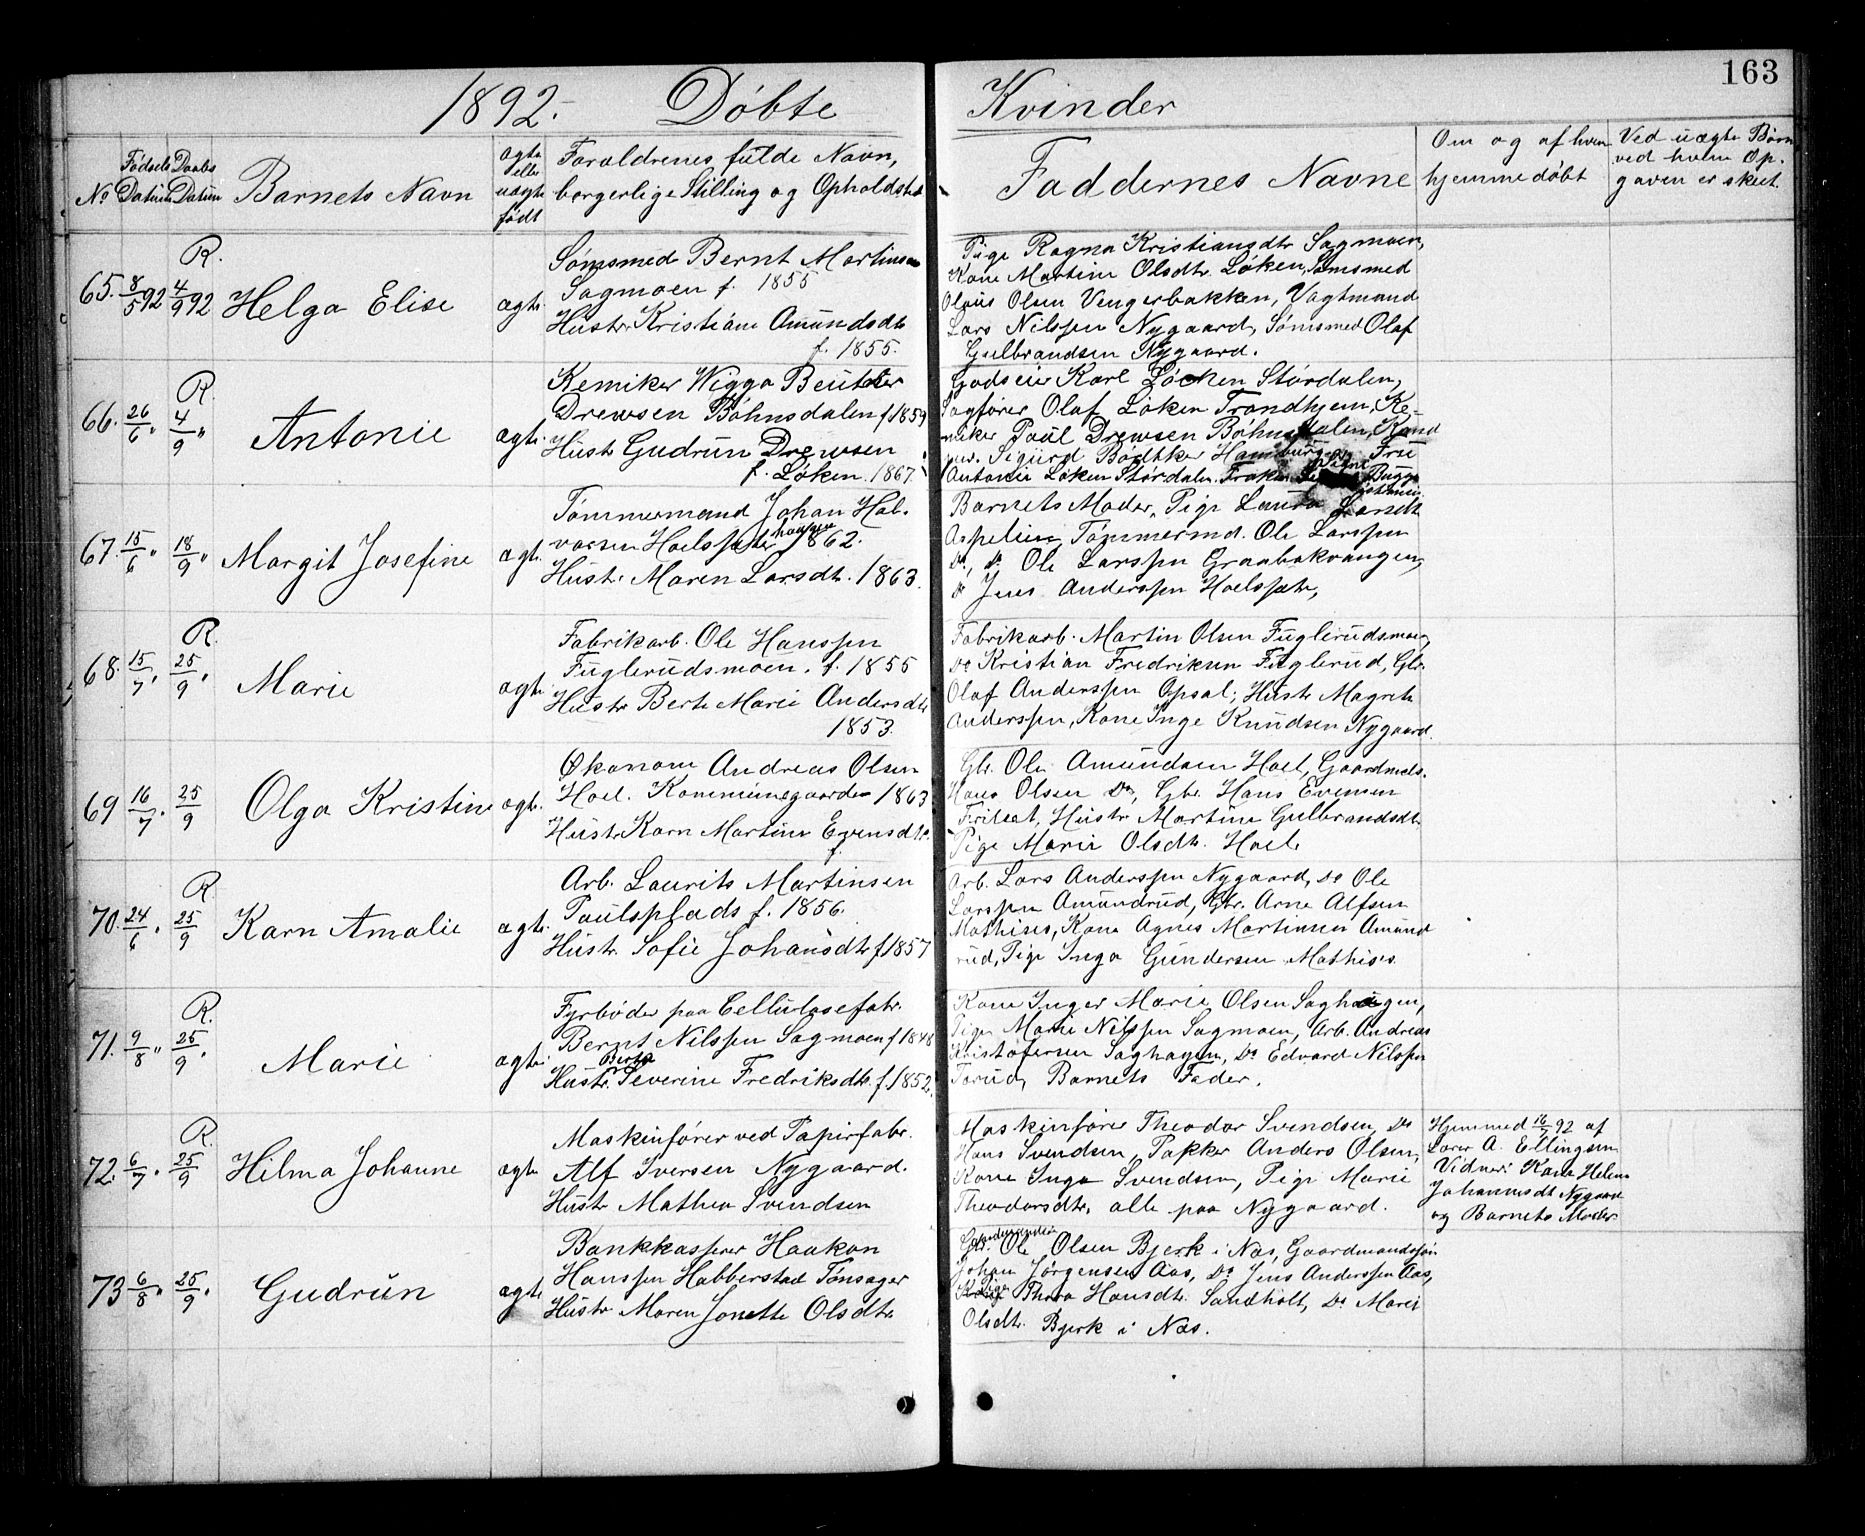 163
1892. Døbte Kvinder
No
Fødsels Datum
Daabs Datum
Barnets Navn
ægte eller uægte født
Forældrenes fulde Navn,
borgerlige Stilling og Opholdsted
Faddernes Navne
Om og af hvem
hjemmedøbt
Ved uægte Børn
ved hvem Op-
gaven er skeet.
65. 8/5 92 R. 4/9 92 Helga Elise ægte
Sømsmed Bernt Martinsen
Sagmoen f. 1855
Hustr. Kristiane Amundsdtr
f. 1855.
Pige Ragna Kristiansdtr Sagmoen,
Kone Martine Olsdtr. Løken, Sømsmed
Olaus Olsen Vengerbakken, Vagtmand
Lars Nilssen Nygaard, Sømsmed Olaf
Gulbrandsen Nygaard.
66. 26/6 " R. 4/9 " Antonie ægte
Kemiker Wiggo Beutner
Drewsen Bøhnsdalen f 1859
Hustr Gudrun Drewsen
f. Løken. 1867.
Godseier Karl Løcken Stördalen,
Sagfører Olaf Løken Trondhjem, Ke-
miker Paul Drewsen Bøhnsdalen, Kand
Sigurd Bødtker Hamburg, Frue
Antonie Løken Stördalen. Frøken Signe Bugge
67. 15/6 " 18/9 " Margit Josefine ægte
Tømmermand Johan Hal-
vorsen Hoelssæterhaugen 1862.
Hustr. Maren Larsdtr. 1863.
Barnets Moder, Pige Laura
Aspelien, Tømmermd. Ole Larssen
Do, Do Ole Larssen Graabækvangen,
Do Jens Anderssen Hoelssætr,
68. 15/7 " R. 25/9 " Marie ægte
Fabrikarb. Ole Hanssen
Fuglerudsmoen. f. 1855
Hustr Berte Marie Andersdtr
1853.
Fabrikarb. Martin Olsen Fuglerudsmoen,
Do Kristian Fredriksen Fuglerud, Gbr.
Olaf Anderssen Opsal, Hustr Magrete
Anderssen, Kone Inge Knudsen Nygaard.
69 16/7 " 25/9 Olga Kristine ægte
Økonom Andreas Olsen
Hoel. Kommunegaarden 1863
Hustr Karn Martine Evensdtr.
f.
Gbr. Ole Amundsen Hoel, Gaardmds.
Hans Olsen Do, Gbr. Hans Evensen
Friteat, Hustr Martine Gulbrandsdtr.
Pige Marie Olsdtr. Hoel.
70. 24/6 " R. 25/9 Karn Amalie ægte
Arb. Laurits Martinsen
Paulsplads f. 1856.
Hustr. Sofie Johansdtr f 1857
Arb. Lars Anderssen Nygaard, Do Ole
Larssen Amundrud, Gbr. Arne Alfsen
Mathises, Kone Agnes Martinsen Amund
rud, Pige Inga Gundersen Mathises.
71. 9/8 " R. 25/9 " Marie ægte
Fyrbøder paa Cellulosefabr.
Bernt Nilssen Sagmoen f 1848
Hustr. Berta Severine Fredriksdtr. f. 1852.
Kone Inger Marie Olsen Saghaugen,
Pige Marie Nilssen Sagmoen, Arb. Andreas
Kristofersen Saghagen, Do Edvard Nilssen
Torud, Barnets Fader.
72. 6/7 " R. 25/9 Hilma Johanne ægte
Maskinfører ved Papirfabr.
Alf Iversen Nygaard.
Hustr Mathea Svendsen
Maskinfører Theodor Svendsen, Do
Hans Svendsen, Pakker Anders Olsen,
Kone Inga Svendsen, Pige Marie
Theodorsdtr, alle paa Nygaard.
Hjemmed 16/7 92 af
Lærer A. Ellingsen
Vidner: Kone Helene
Johannesdtr Nygaard
og Barnets Moder
73 6/8 " 25/9 " Gudrun ægte
Bankkasserer Haakon
Hanssen Habberstad Tønsager
Hustr Maren Jonette Olsdtr
Gbr. Ole Olsen Bjerk i Næs, Gaardmandssøn
Johan Jørgensen Aas, Do Jens Anderssen Aas,
Thora Hansdtr. Sandholt, Do Marie
Olsdtr. Bjerk i Næs.